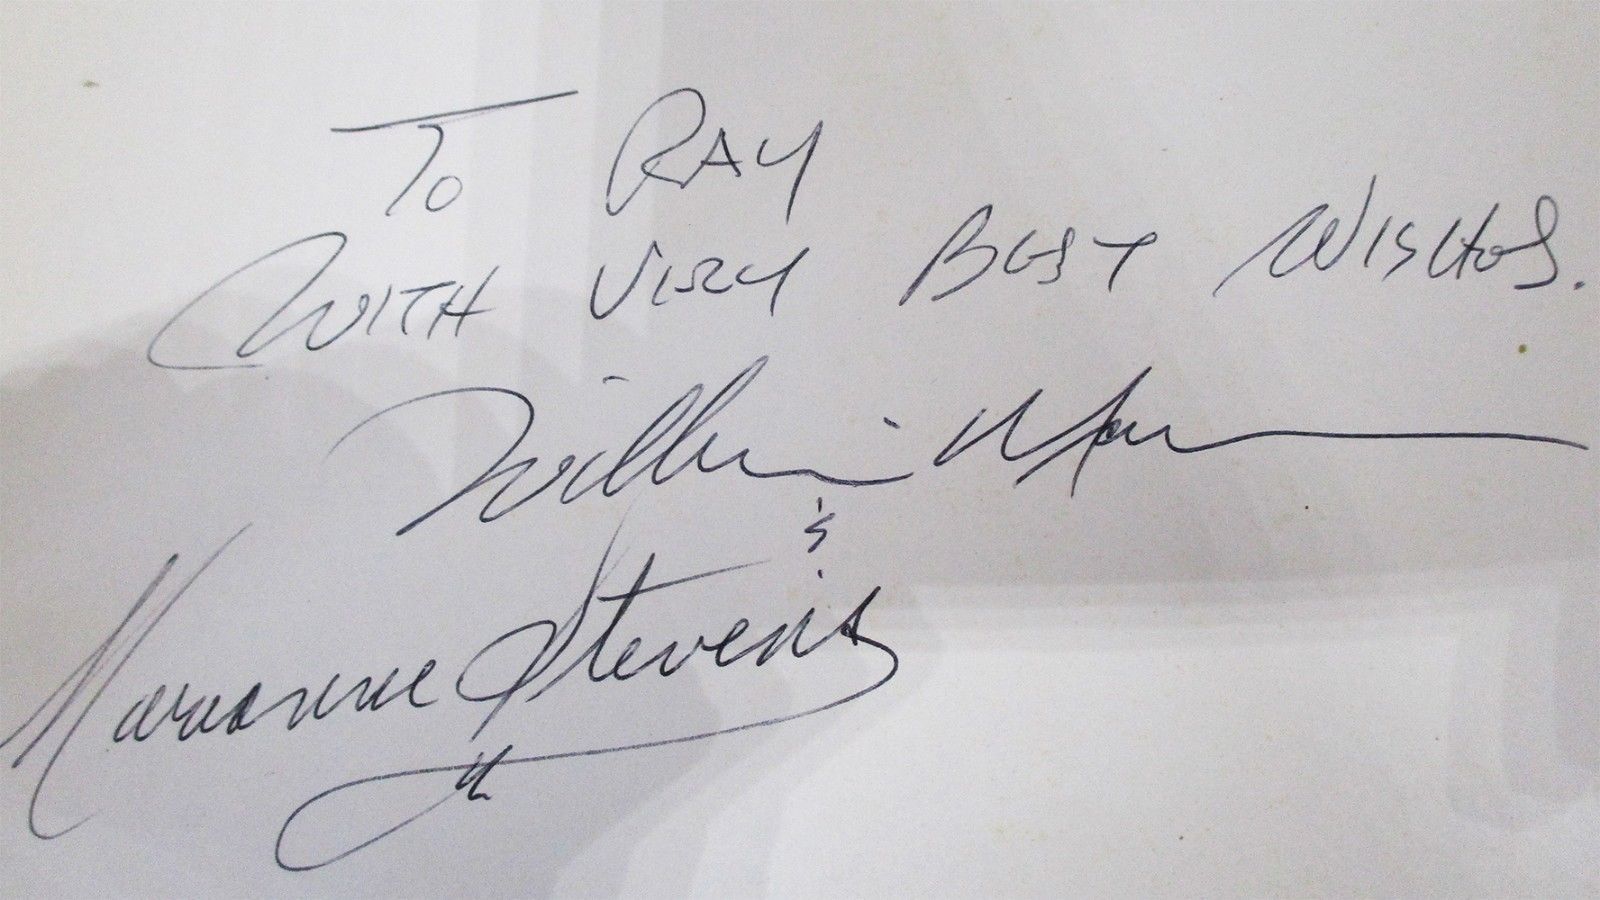 To RAY
WITH VERY BEST WISHES.
William
&
Marianne Stevens